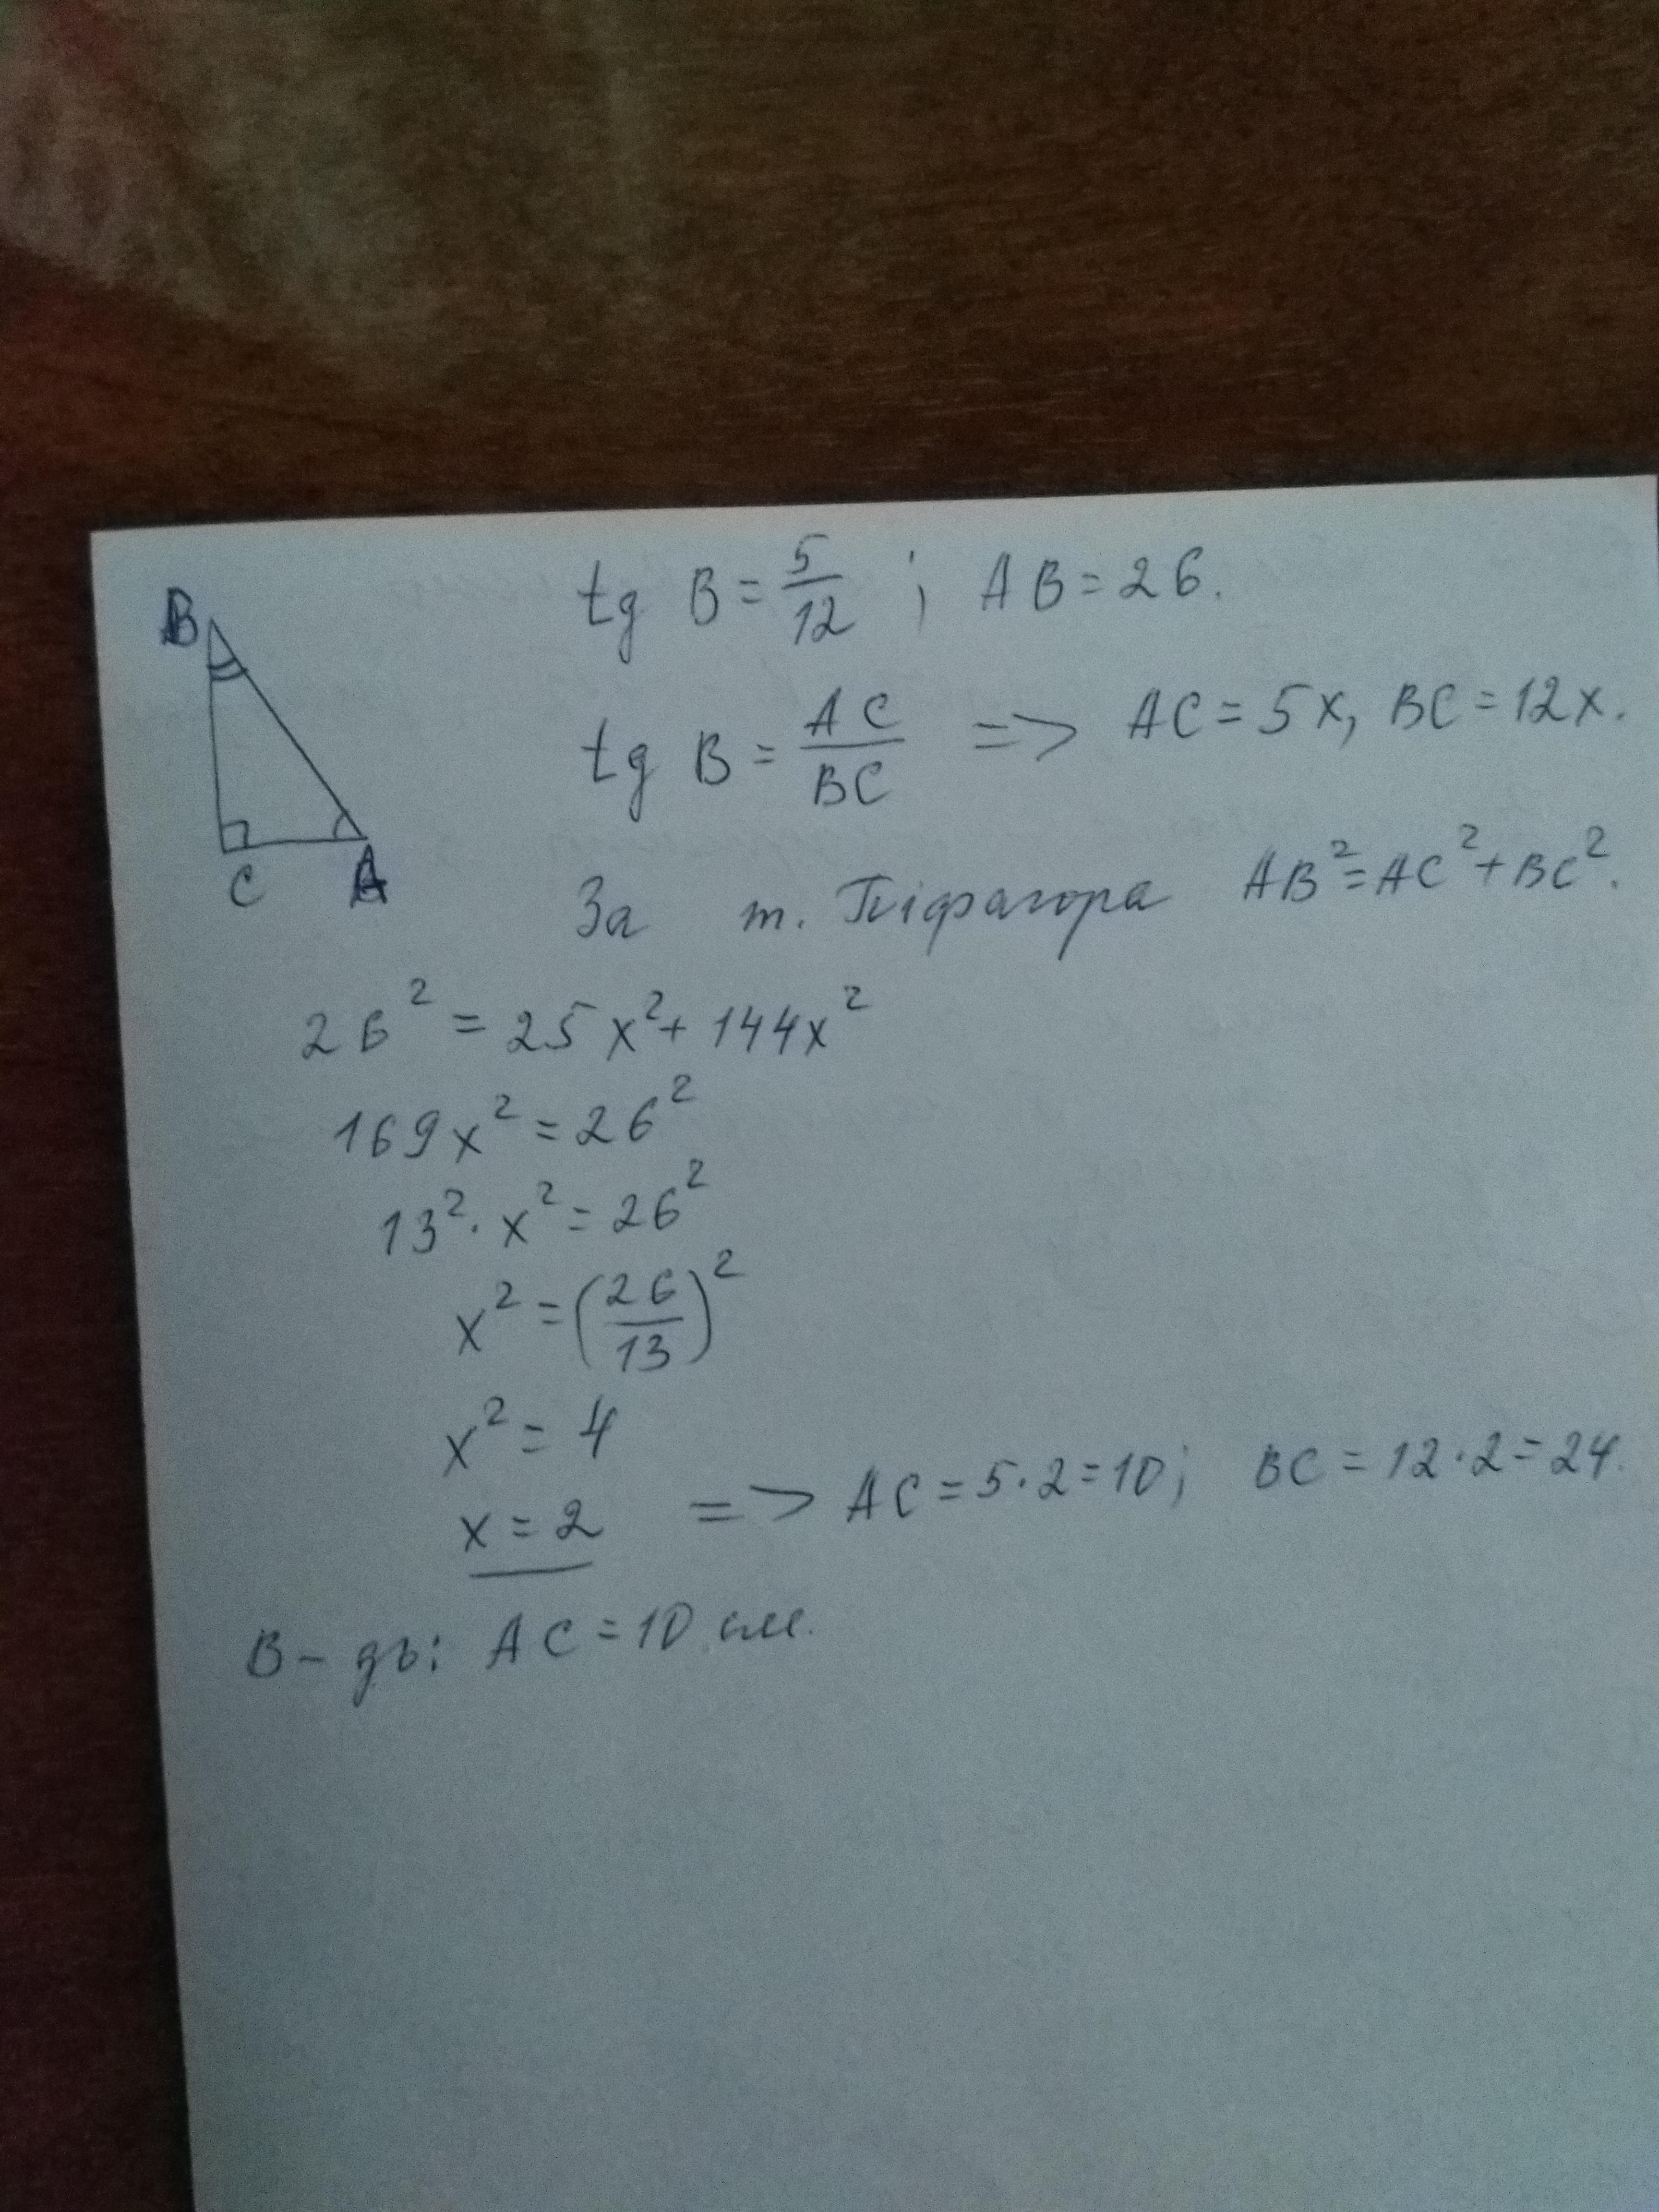 B
C
A
tg B = 5/12 ; AB = 26.
tg B = AC/BC => AC = 5x, BC = 12x.
За т. Піфагора AB² = AC² + BC².
26² = 25x² + 144x²
169x² = 26²
13² · x² = 26²
x² = (26/13)²
x² = 4
x = 2 => AC = 5·2 = 10; BC = 12·2 = 24.
В-дь: AC = 10 см.